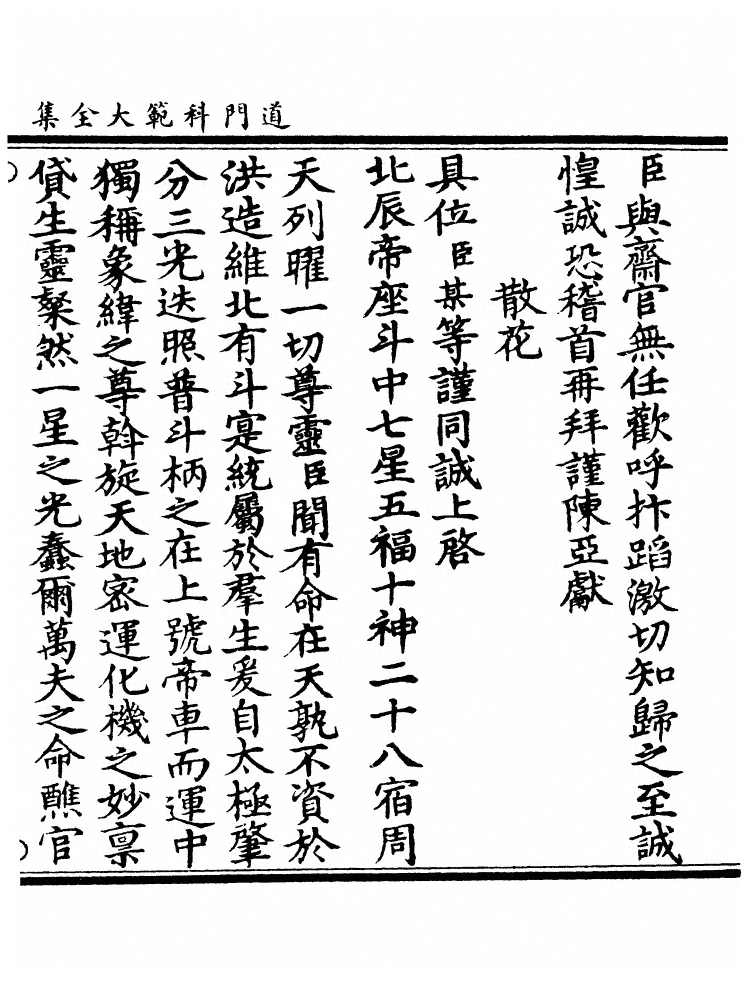 道門科範大全集
臣與齋官無任歡呼抃蹈激切知歸之至誠
惶誠恐稽首再拜謹陳亞獻
散花
具位臣某等謹同誠上啓
北辰帝座斗中七星五福十神二十八宿周
天列曜一切尊靈臣聞有命在天孰不資於
洪造維北有斗寔統屬於羣生爰自太極肇
分三光迭照普斗柄之在上號帝車而運中
獨稱象緯之尊斡旋天地密運化機之妙稟
貸生靈粲然一星之光蠢爾萬夫之命醮官